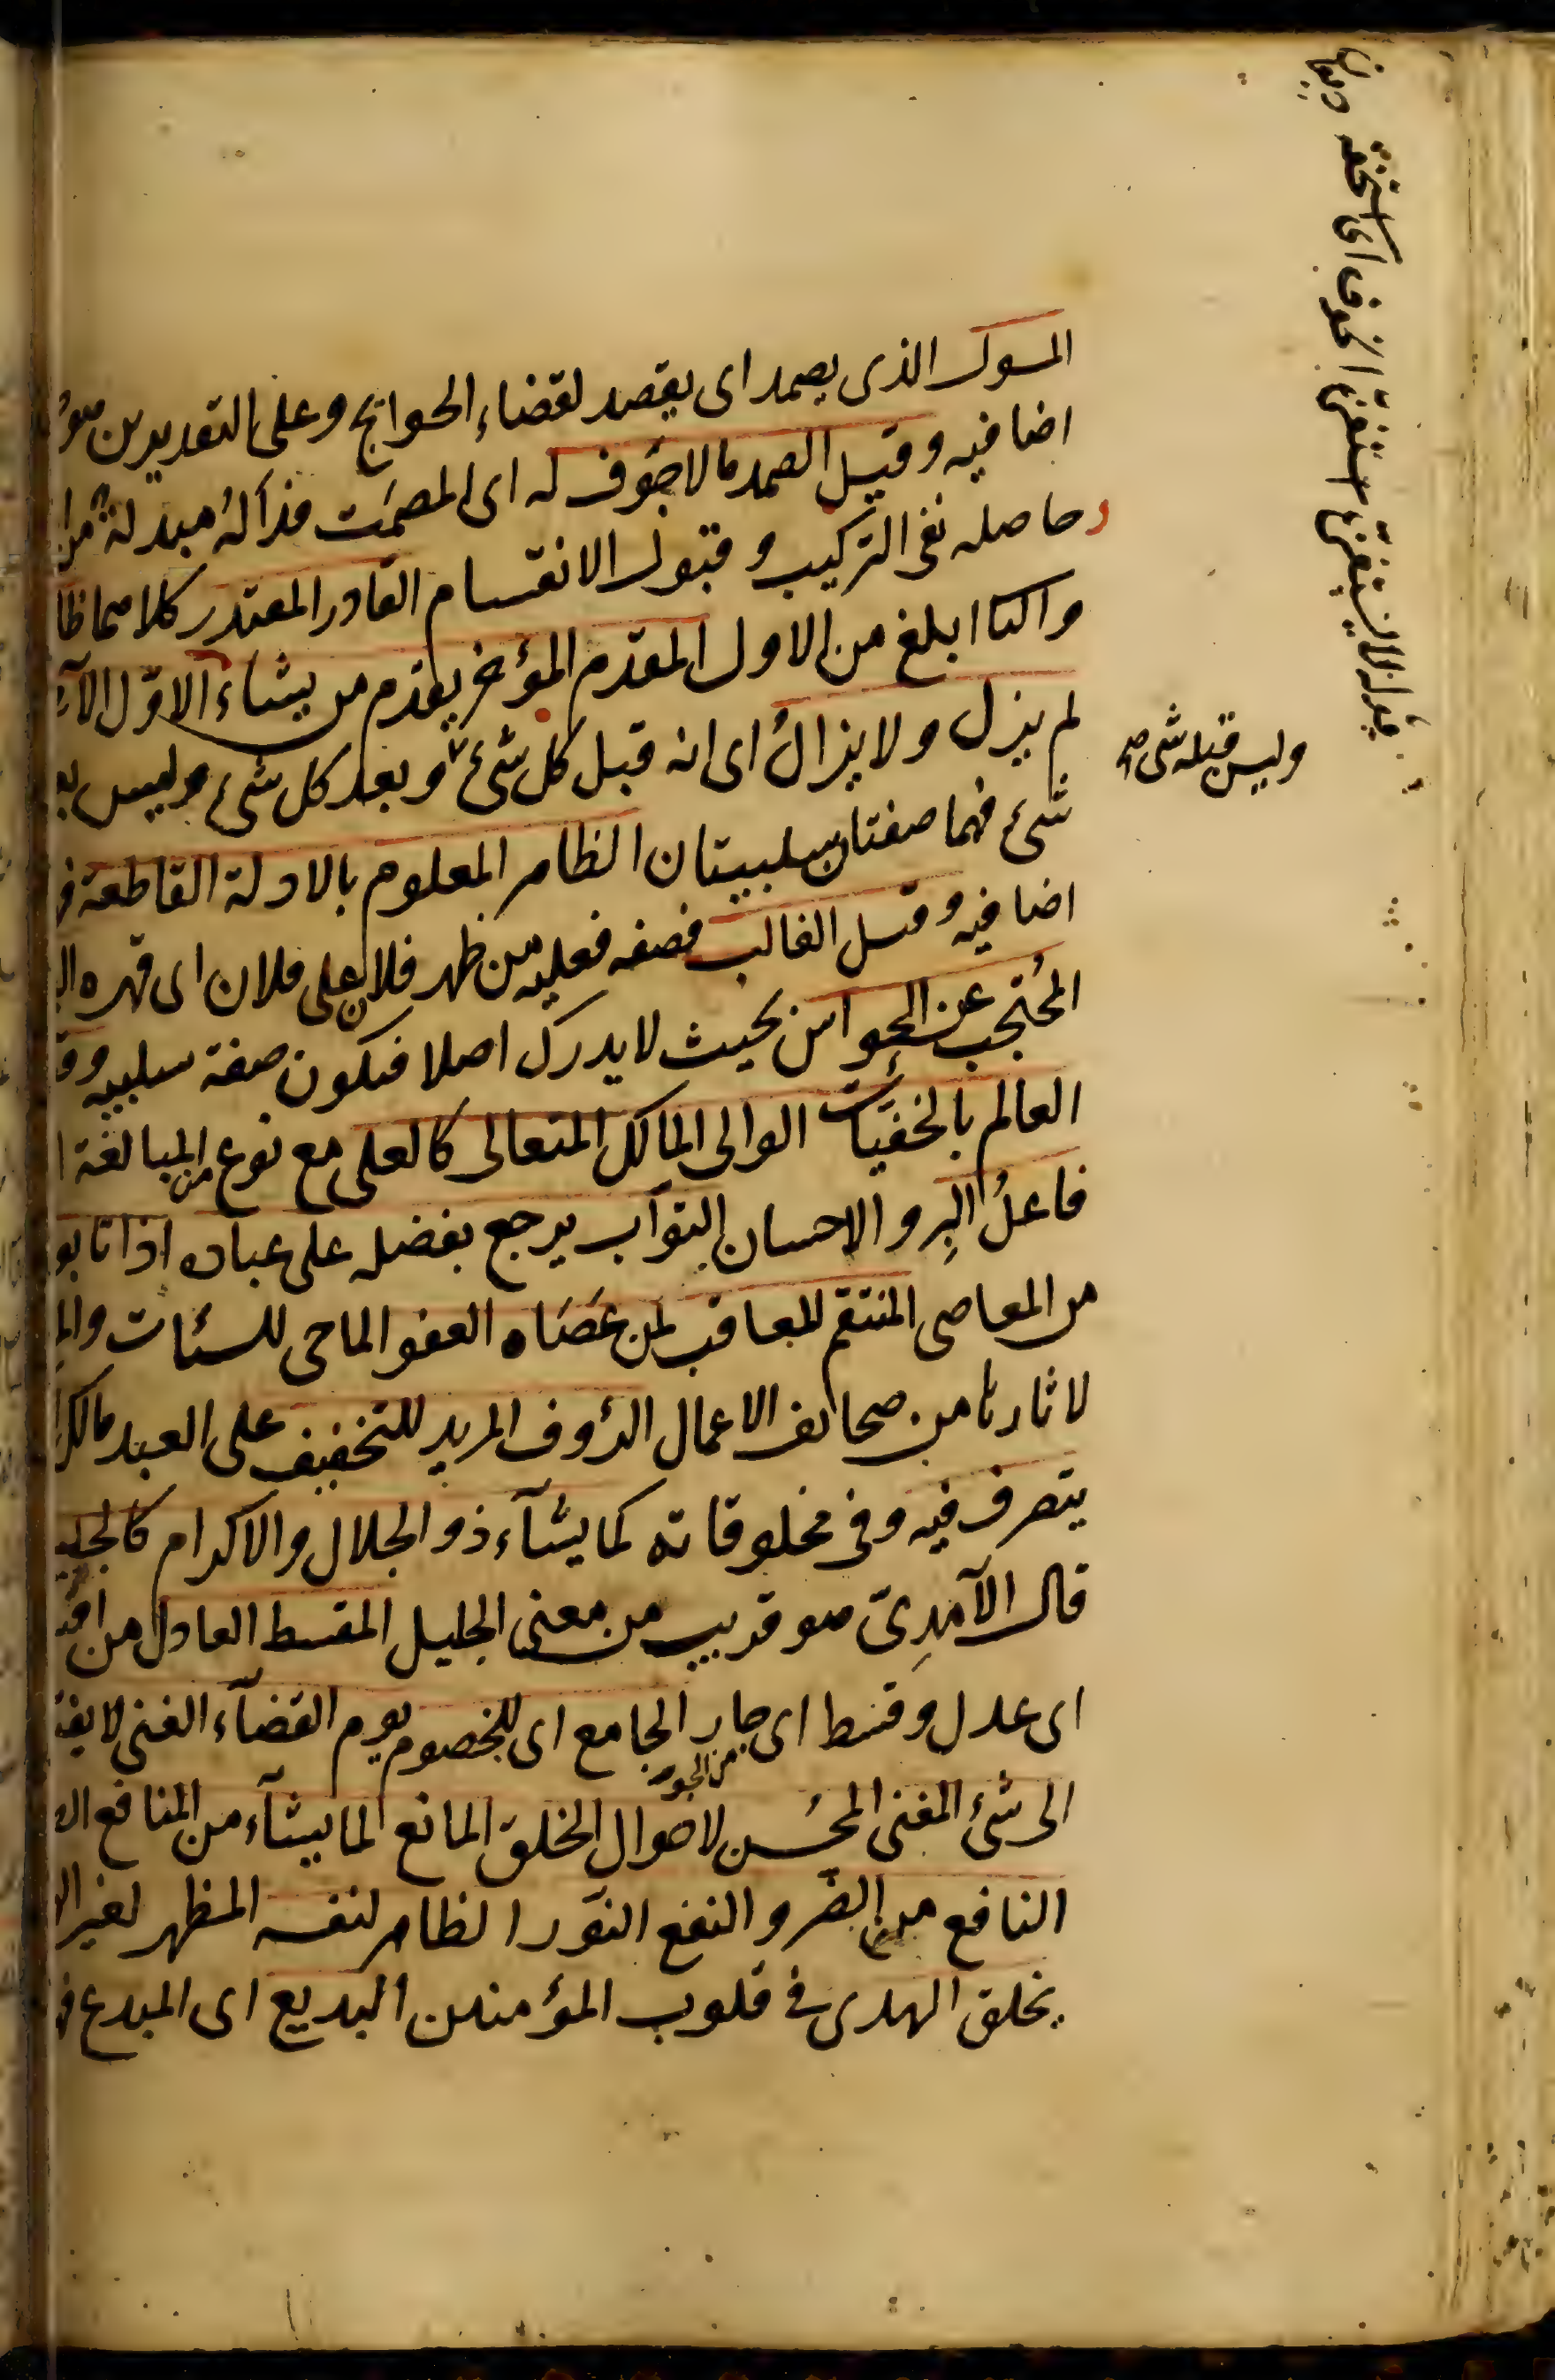 المسوك الذى يصمد اى يقصد لقضاء الحوايج وعلى التقديرين هو
اضافيه وقيل الصمد ما لا جوف له اى المصمت فداله مبدلة من
حاصله نفى التركيب وقبول الانقسام القادر المقتدر كلاهما ظا
واكثا ابلغ من الاول المقدم المؤخر يقدم من يشاء الاول الآ
لم يزل ولا يزال اى انه قبل كل شئ وبعد كل شئ وليس بع
وليس قبله شئ صح
شئ فهما صفتان سلبيتان الظاهر المعلوم بالادلة القاطعة ف
اضافيه وقيل الغالب فصفه فعليه من ظهر فلان على فلان اى قهره ال
المحتجب عن الحواس بحيث لا يدرك اصلا فيكون صفة سلبيه وق
العالم بالخفيات الوالى المالك المتعالى كالعلى مع نوع من المبالغة ا
فاعل البر والاحسان التواب يرجع بفضله على عباده اذا تابو
من المعاصى المنتقم للمعاقب لمن عصاه العفو الماحى للسئات والم
لاثارنا من صحائف الاعمال الرؤف المريد للتخفيف على العبد مالك
يتصرف فيه وفى مخلوقاته كما يشآء ذو الجلال والاكرام كالجليـ
قال الآمدى هو قريب من معنى الجليل المقسط العادل من اقـ
اى عدل وقسط اى جار الجامع اى للخصوم يوم القضآء الغنى لا يفتـ
من الجور
الى شئ المغنى المحسن لاحوال الخلق المانع لما يشآء من المنافع ال
النافع منه الضر والنفع النور الظاهر لنفسه المظهر لغيره ال
يخلق الهدى فى قلوب المؤمنين البديع اى المبدع ف